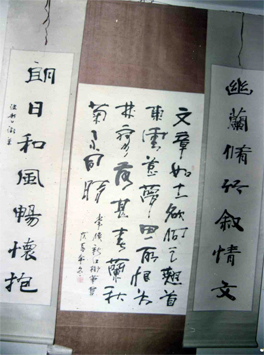 幽蘭脩竹敘情文
文章如土欲何之翹首
東雲惹夢思所恨芳
林寥落甚春蘭秋
菊不同時
朗日和風暢懷抱